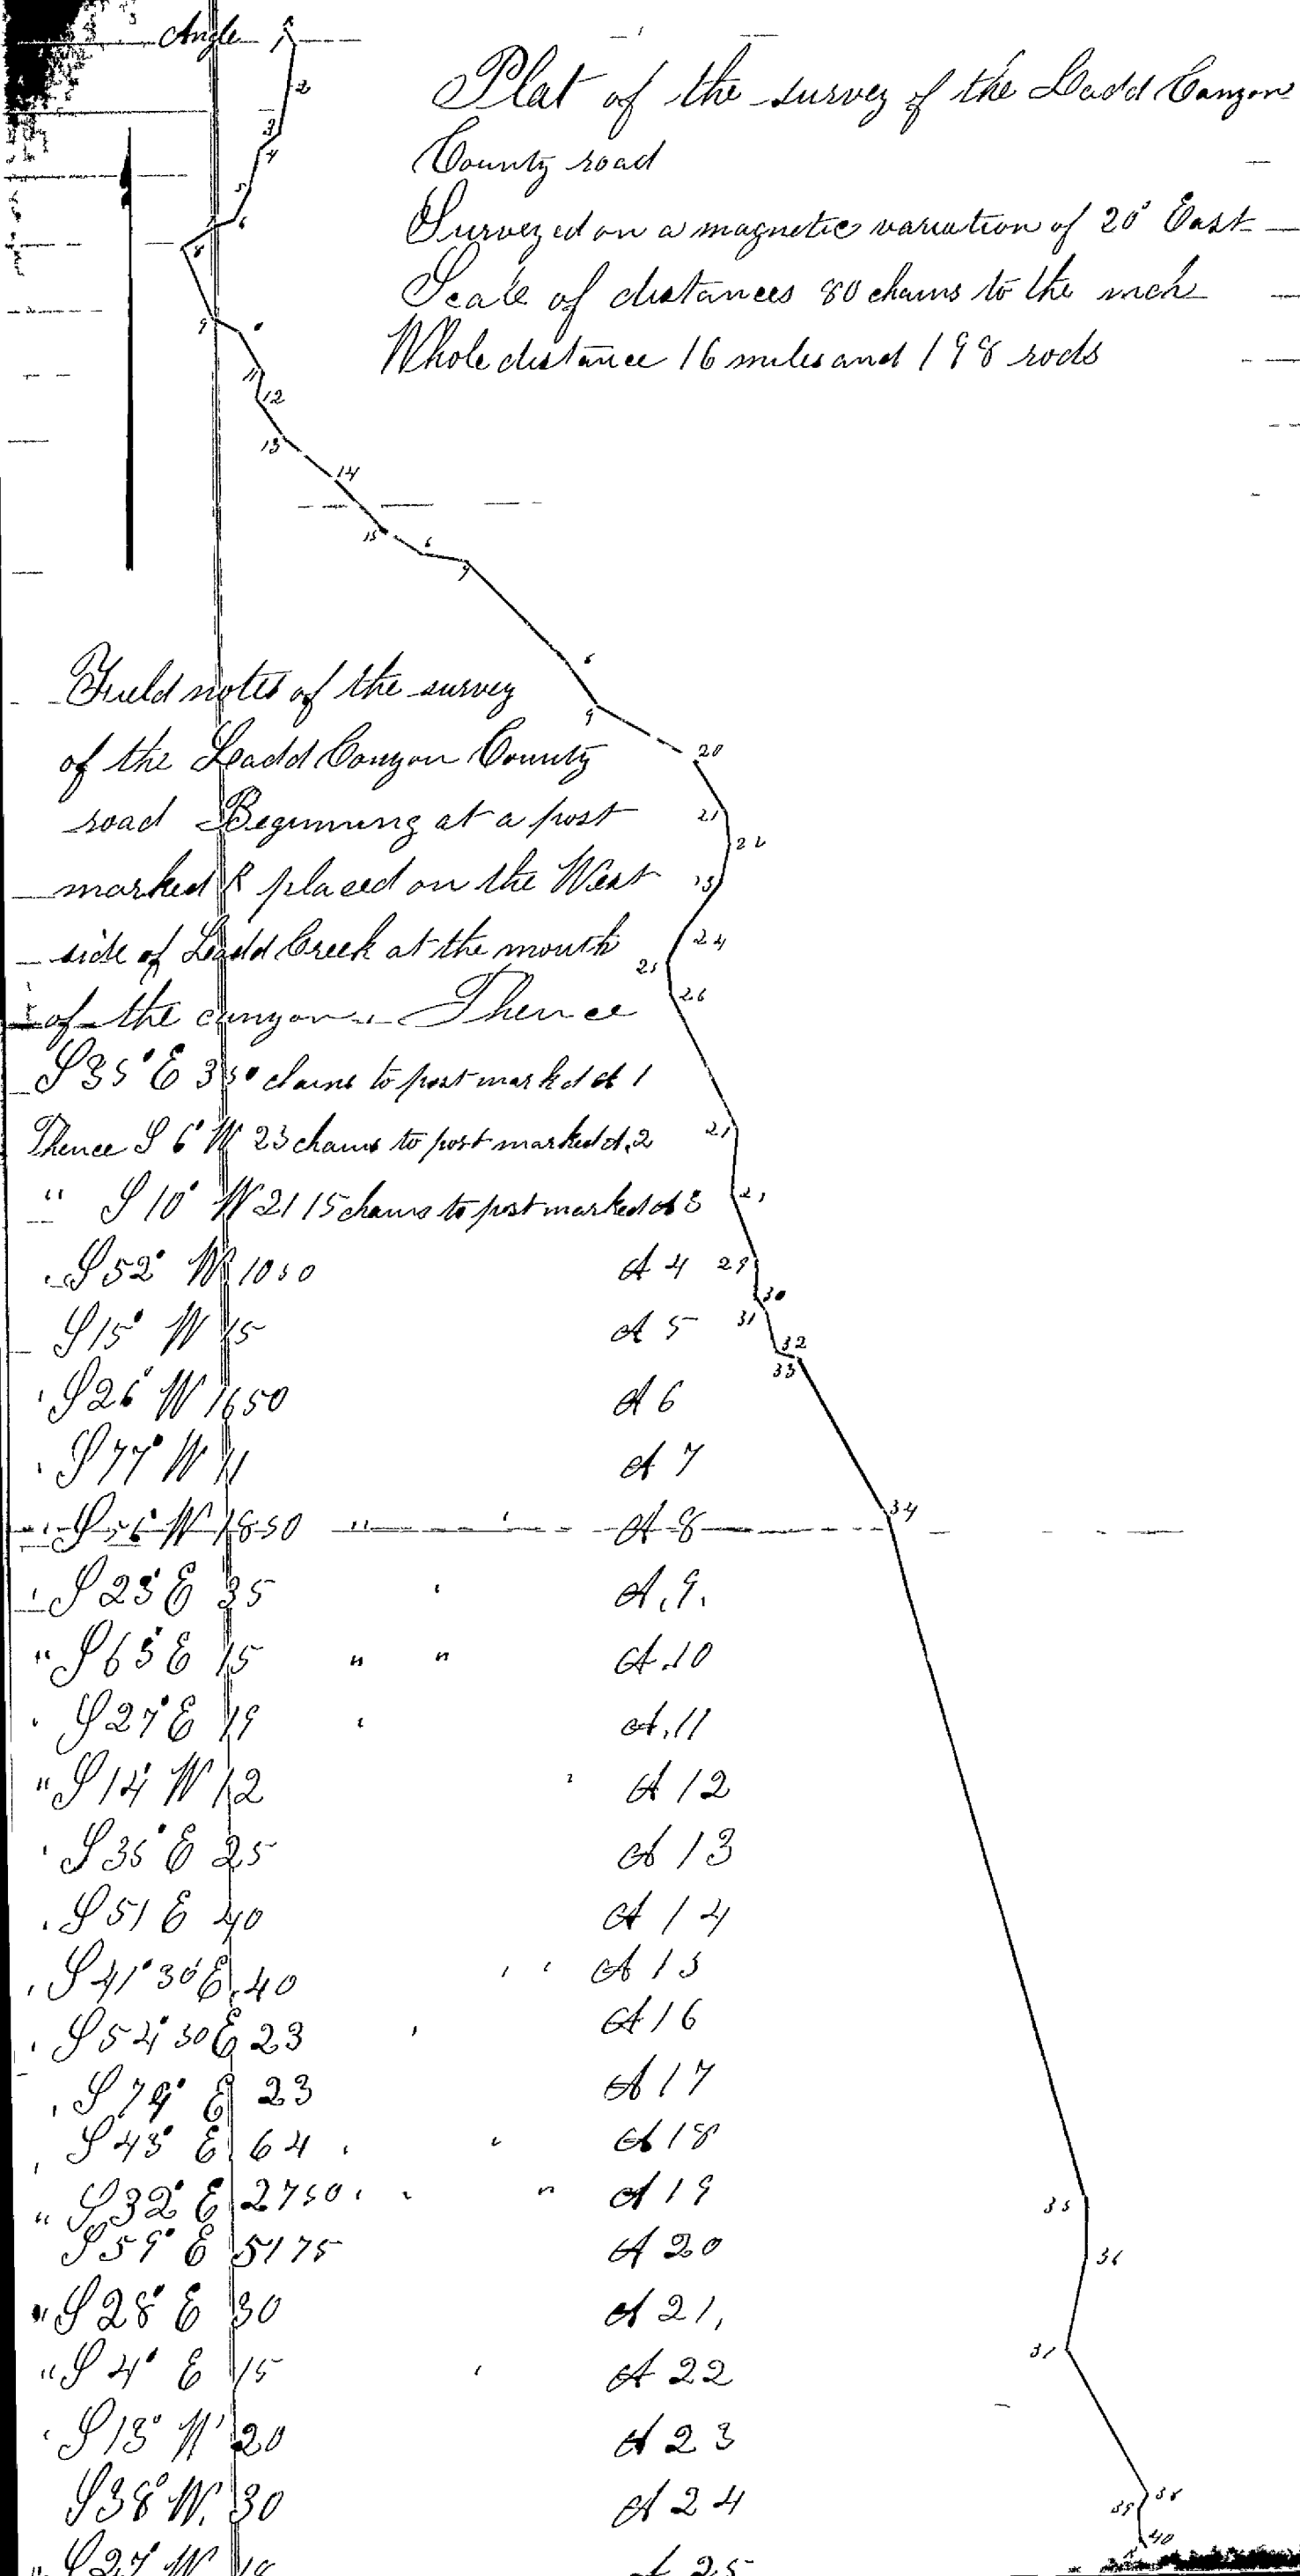 Angle
Plat of the survey of the Ladd Canyon
County road
Surveyed on a magnetic variation of 20° East
Scale of distances 80 chains to the inch
Whole distance 16 miles and 198 rods
2
3
4
5
6
8
9
11
12
13
14
15
6
7
9
20
21
22
24
25
26
29
30
31
32
33
34
35
36
40
Field notes of the survey
of the Ladd Canyon County
road Beginning at a post
marked R placed on the West
side of Ladd Creek at the mouth
of the canyon Thence
S 35° E 3 50 chains to post marked A 1
Thence S 6° W 23 chains to post marked A. 2
" S 10° W 21 15 chains to post marked A 3
S 52° W 10 50 A 4
S 15° W 15 A 5
S 26° W 16 50 A 6
S 77° W 11 A 7
W 18 50 " A 8
S 23° E 35 A. 9.
" S 63° E 15 " " A. 10
S 27° E 19 A. 11
" S 14° W 12 A 12
S 35° E 25 A 13
S 51 E 40 A 14
S 41° 30 E. 40 A 15
S 54° 30 E 23 A 16
S 79° E 23 A 17
S 43° E 64 A 18
" S 32° E 27 50 " A 19
S 59° E 51 75 A 20
" S 28° E 30 A 21,
" S 4° E 15 A 22
S 13° W 20 A 23
S 38° W. 30 A 24
" S 27° W A 25